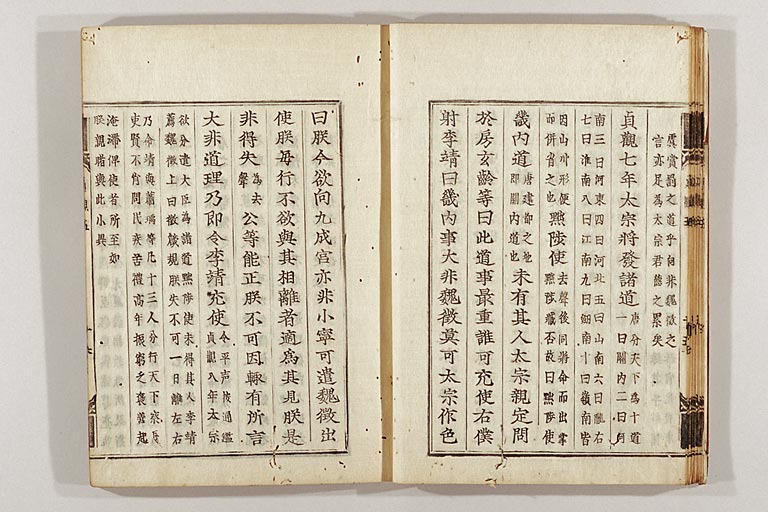 虞賞罰之道乎向非魏徵之
言亦足為太宗君德之累矣
貞觀七年太宗將發諸道唐分天下為十道一曰關內二曰河
南三曰河東四曰河北五曰山南六曰隴右
七曰淮南八曰江南九曰劒南十曰嶺南皆
因山川形便而併省之也黜陟使去聲後同將命而出掌黜陟臧否故曰黜陟使
畿內道唐建都之地即關內道也未有其人太宗親定問
於房玄齡等曰此道事最重誰可充使右僕
射李靖曰畿內事大非魏徵莫可太宗作色
曰朕今欲向九成宮亦非小寧可遣魏徵出
使朕每行不欲與其相離者適為其見朕是
非得失為去聲公等能正朕不可因輒有所言
大非道理乃即令李靖充使令平聲後通鑑貞觀八年太宗
欲分遣大臣為諸道黜陟使未得其人李靖
薦魏徵上曰徵箴規朕失不可一日離左右
乃命靖與蕭瑀等凡十三人分行天下察長
吏賢不肖問民疾苦禮高年振窮乏褒善起
淹滯俾使者所至如
朕親睹與此小異